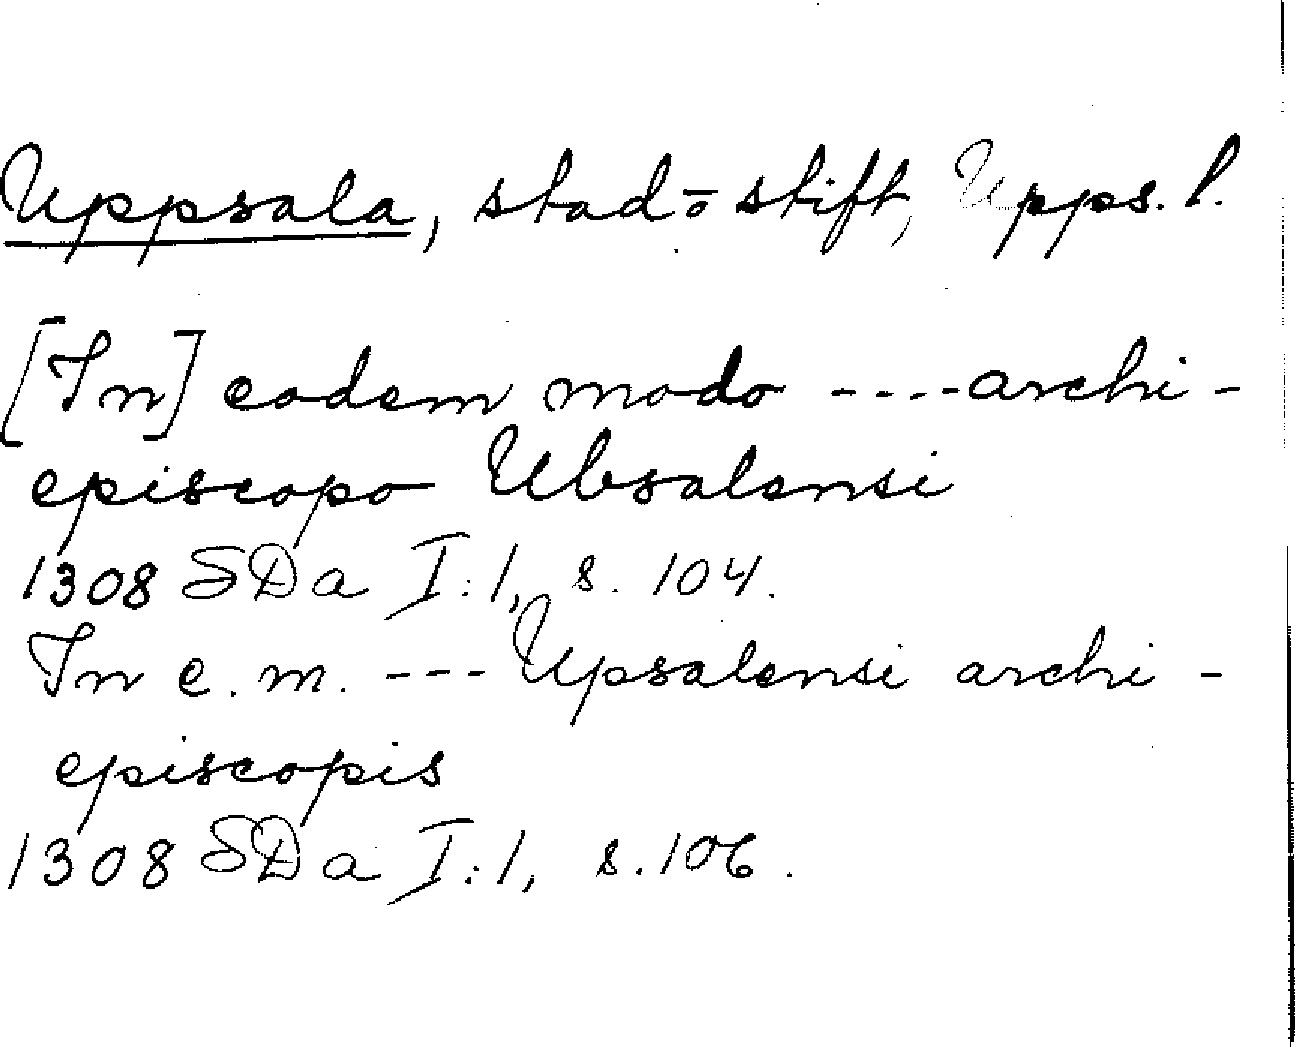 Uppsala, stad o stift, Upps. l.
[In] eodem modo ----archi-
episcopo Ubsalensi
1308 SDa I:1, s. 104.
In e. m. --- Upsalensi archi-
episcopis
1308 SDa I:1, s. 106.